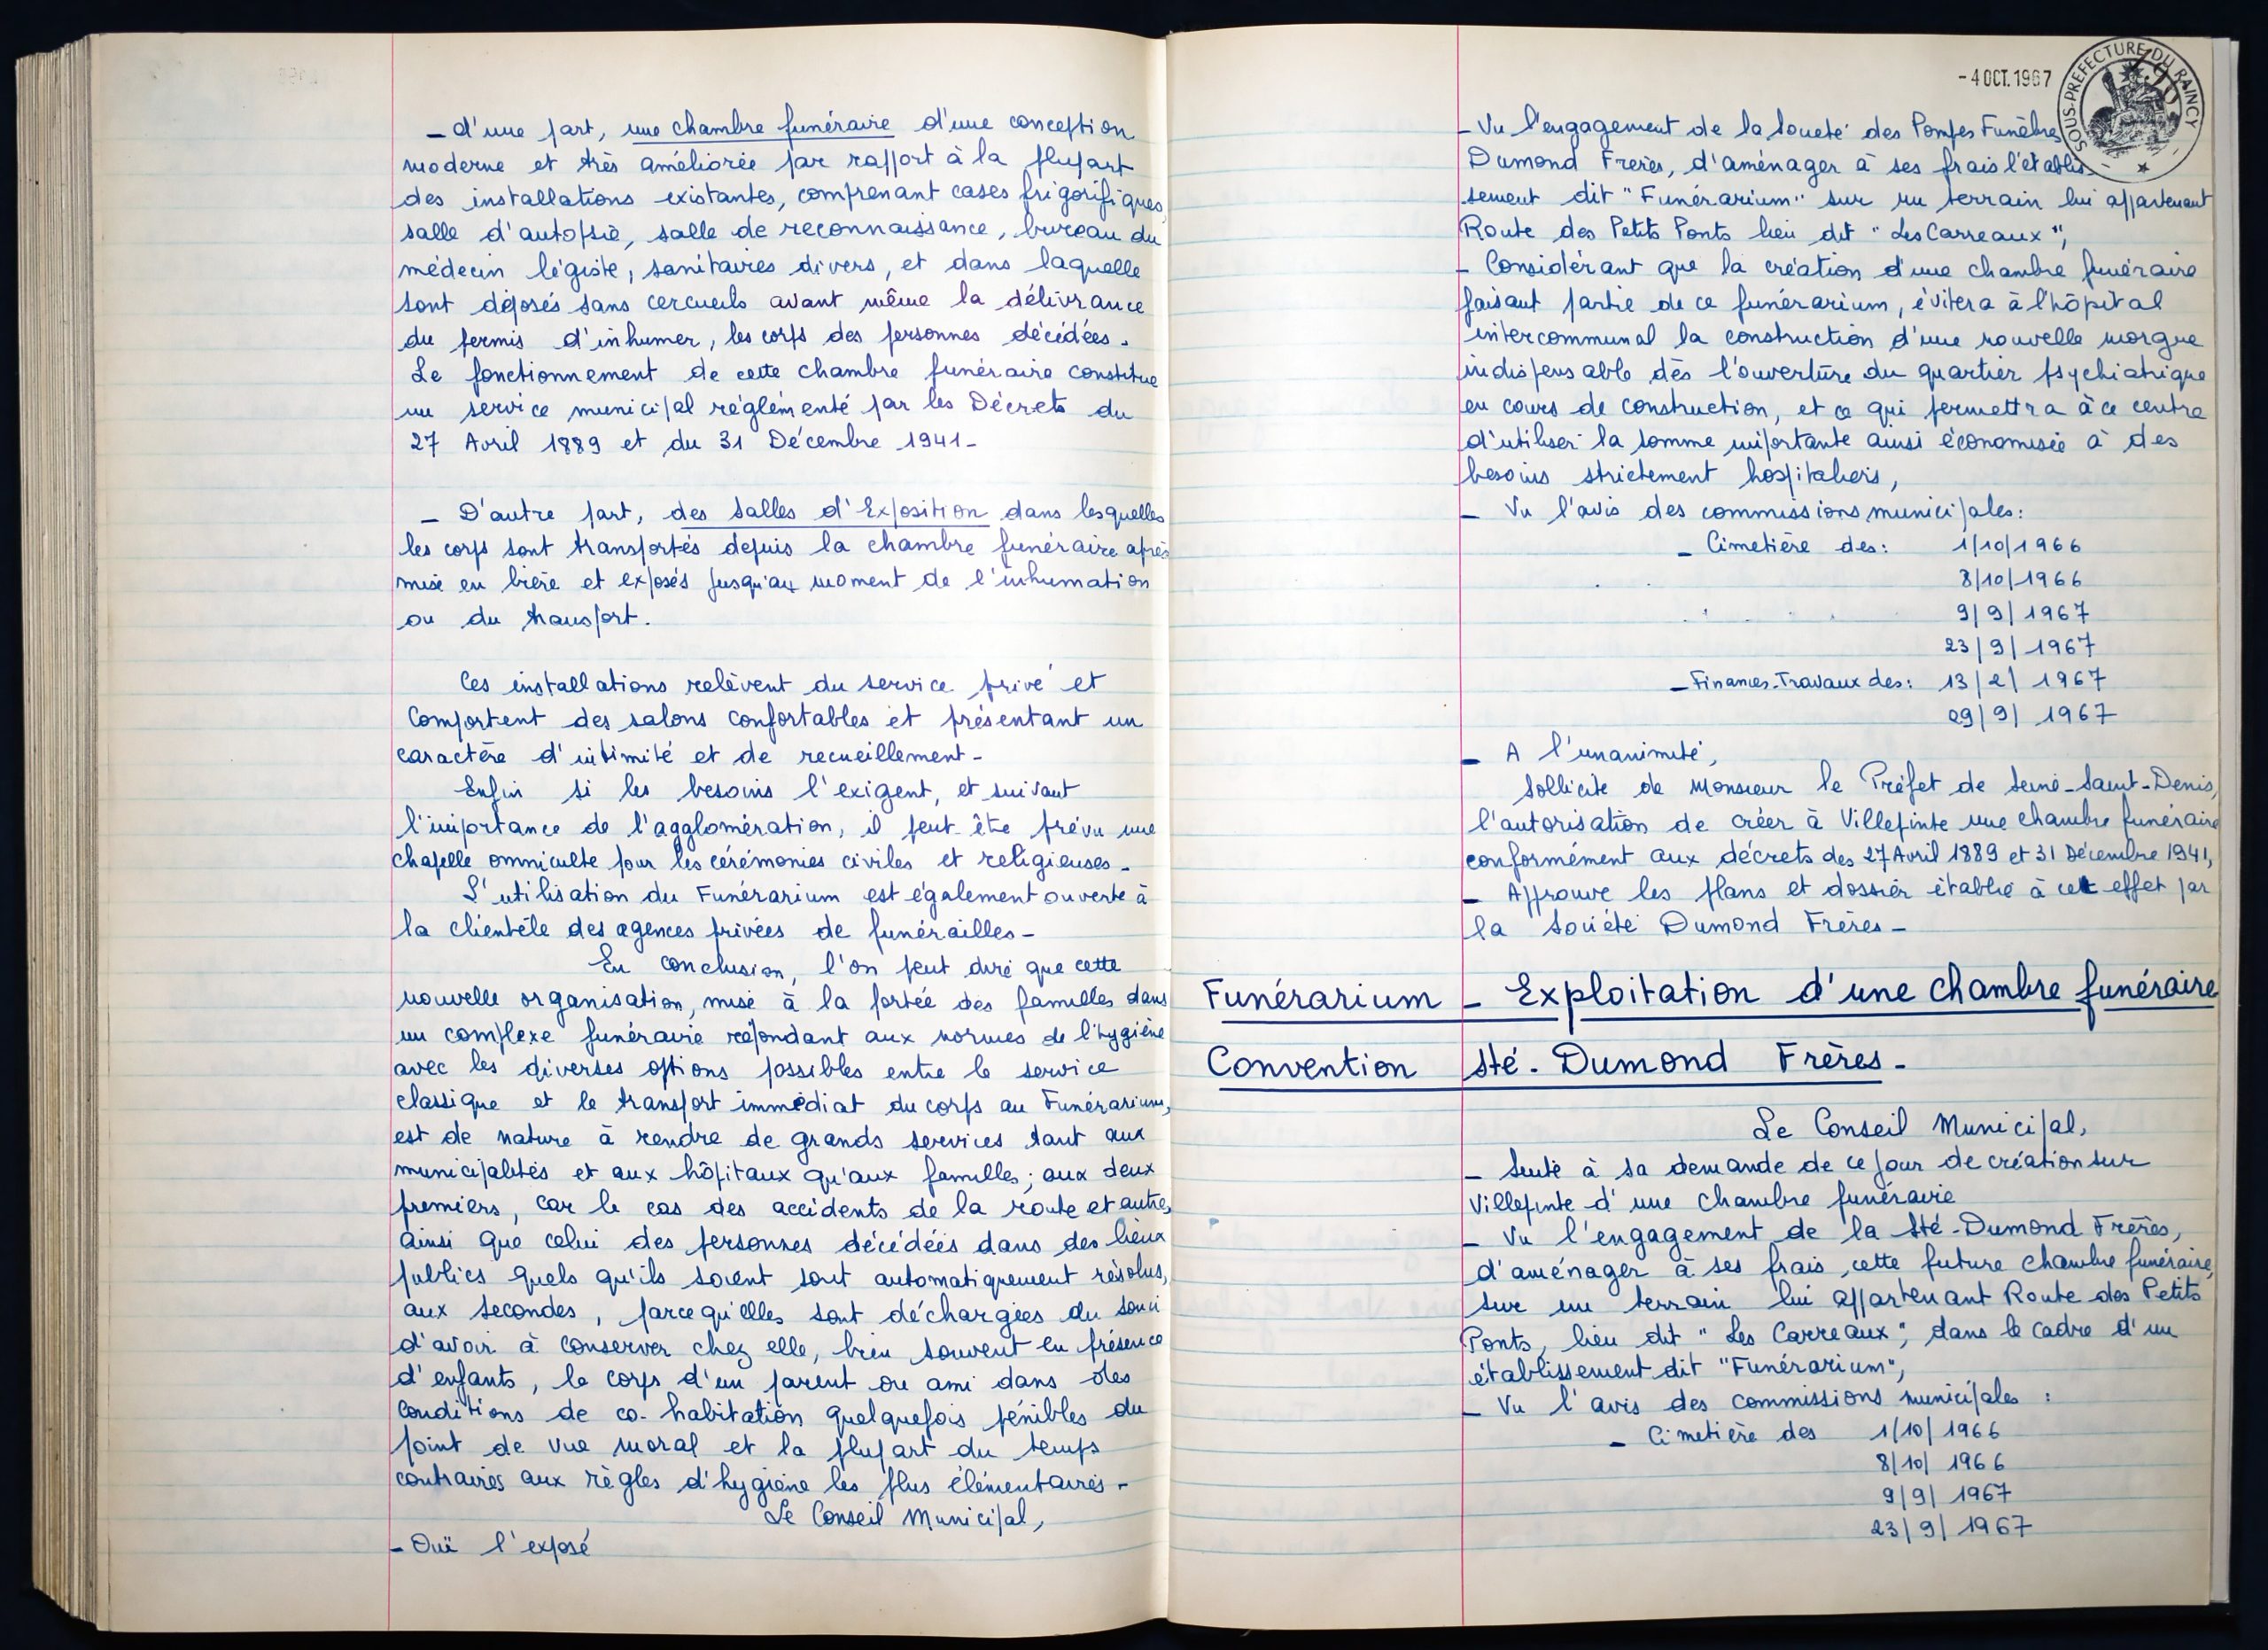 - d'une part, une chambre funéraire d'une conception
moderne et très améliorée par rapport à la plupart
des installations existantes, comprenant cases frigorifiques,
salle d'autopsie, salle de reconnaissance, bureau du
médecin légiste, sanitaires divers, et dans laquelle
sont déposés sans cercueils avant même la délivrance
du permis d'inhumer, les corps des personnes décédées.
Le fonctionnement de cette chambre funéraire constitue
un service municipal réglementé par les Décrets du
27 Avril 1889 et du 31 Décembre 1941-
- D'autre part, des salles d'Exposition dans lesquelles
les corps sont transportés depuis la chambre funéraire après
mise en bière et exposés jusqu'au moment de l'inhumation
ou du transport.
Ces installations relèvent du service privé et
comportent des salons confortables et présentant un
caractère d'intimité et de recueillement-
Enfin si les besoins l'exigent, et suivant
l'importance de l'agglomération, il peut être prévu une
chapelle omniculte pour les cérémonies civiles et religieuses-
L'utilisation du Funérarium est également ouverte à
la clientèle des agences privées de funérailles-
En conclusion, l'on peut dire que cette
nouvelle organisation, mise à la portée des familles dans
un complexe funéraire répondant aux normes de l'hygiène
avec les diverses options possibles entre le service
classique et le transport immédiat du corps au Funérarium,
est de nature à rendre de grands services tant aux
municipalités et aux hôpitaux qu'aux familles; aux deux
premiers, car le cas des accidents de la route et autre,
ainsi que celui des personnes décédées dans des lieux
publics quels qu'ils soient sont automatiquement résolus,
aux secondes, parce qu'elles sont déchargées du souci
d'avoir à conserver chez elle, bien souvent en présence
d'enfants, le corps d'un parent ou ami dans des
conditions de co-habitation quelquefois pénibles du
point de vue moral et la plupart du temps
contraires aux règles d'hygiène les plus élémentaires-
Le Conseil Municipal,
- Ouï l'exposé
-4 OCT. 1967
SOUS-PREFECTURE DU RAINCY
- Vu l'engagement de la Société des Pompes Funèbres
Dumond Frères, d'aménager à ses frais l'établis-
sement dit "Funérarium" sur un terrain lui appartenant
Route des Petits Ponts lieu dit "Les Carreaux",
- Considérant que la création d'une chambre funéraire
faisant partie de ce funérarium, évitera à l'hôpital
intercommunal la construction d'une nouvelle morgue
indispensable dès l'ouverture du quartier psychiatrique
en cours de construction, et ce qui permettra à ce centre
d'utiliser la somme importante ainsi économisée à des
besoins strictement hospitaliers,
- Vu l'avis des commissions municipales:
- Cimetière des: 1/10/1966
8/10/1966
9/9/1967
23/9/1967
- Finances-Travaux des: 13/2/1967
29/9/1967
- A l'unanimité,
Sollicite de Monsieur le Préfet de Seine-Saint-Denis,
l'autorisation de créer à Villepinte une chambre funéraire
conformément aux décrets des 27 Avril 1889 et 31 Décembre 1941,
- Approuve les plans et dossier établie à cet effet par
la Société Dumond Frères-
Funérarium - Exploitation d'une chambre funéraire
Convention Sté. Dumond Frères-
Le Conseil Municipal,
- Suite à sa demande de ce jour de création sur
Villepinte d'une chambre funéraire
- Vu l'engagement de la Sté-Dumond Frères,
d'aménager à ses frais, cette future chambre funéraire,
sur un terrain lui appartenant Route des Petits
Ponts, lieu dit "Les Carreaux", dans le cadre d'un
établissement dit "Funérarium",
- Vu l'avis des commissions municipales :
- Cimetière des 1/10/1966
8/10/1966
9/9/1967
23/9/1967